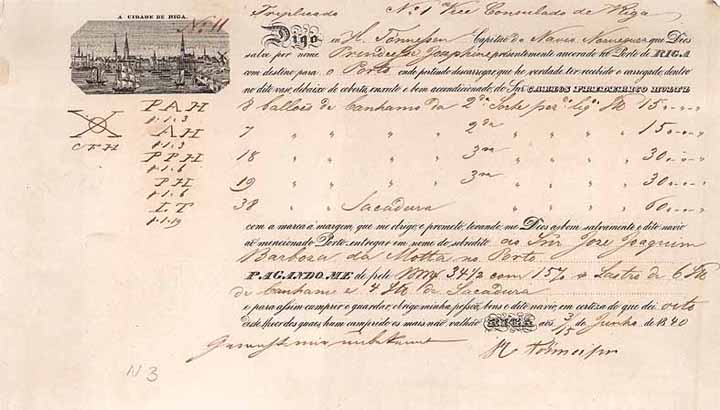 A CIDADE DE RIGA.
No. 11
Triplicado No. 1 Vice Consulado de Riga
Digo eu H. Tönnessen Capitaõ do Navio que Dios
salve por nome Princessa Josephine presentemente ancorado no Porto de RIGA
com destino para o Porto onde pertendo descarregar, que he verdade ter recebido e carregado, dentro
no dito vaso, debaixo de coberta, enxuto e bem acondicionado, do Snr CARLOS FREDERICO HOLTZ
PAH
8 ballões de Canhamo da 2da Sorte 15
1-1-3
AH
7 " " " 2da " " " 15
1-1-3
CFH
PPH
18 " " " 3ra " " " 30
1-1-6
PH
19 " " " 3ra " " " 30
1-1-6
IT
38 " " Sacadura " " 60
1-1-19
com a marca á margem, que me obrigo, e prometo, levando, me Dios a bom salvamento e dito navio
ao mencionado Porto, entregar em nome do sobredito ao Snr Jose Joaquim
Barboza da Motta no Porto
PAGANDO, ME de frete 34 1/2 com 15% Lastro de 6
de Canhamo e 4 de Sacadura
e para assim cumprir e guardar, obrigo minha pessoã, bens e dito navio, em certeza do que dei oito
deste theor dos quaes, hum cumprido os mais naõ valhaõ RIGA aõs 3/15 de Junho de 1840
H Tönnessen
N 3